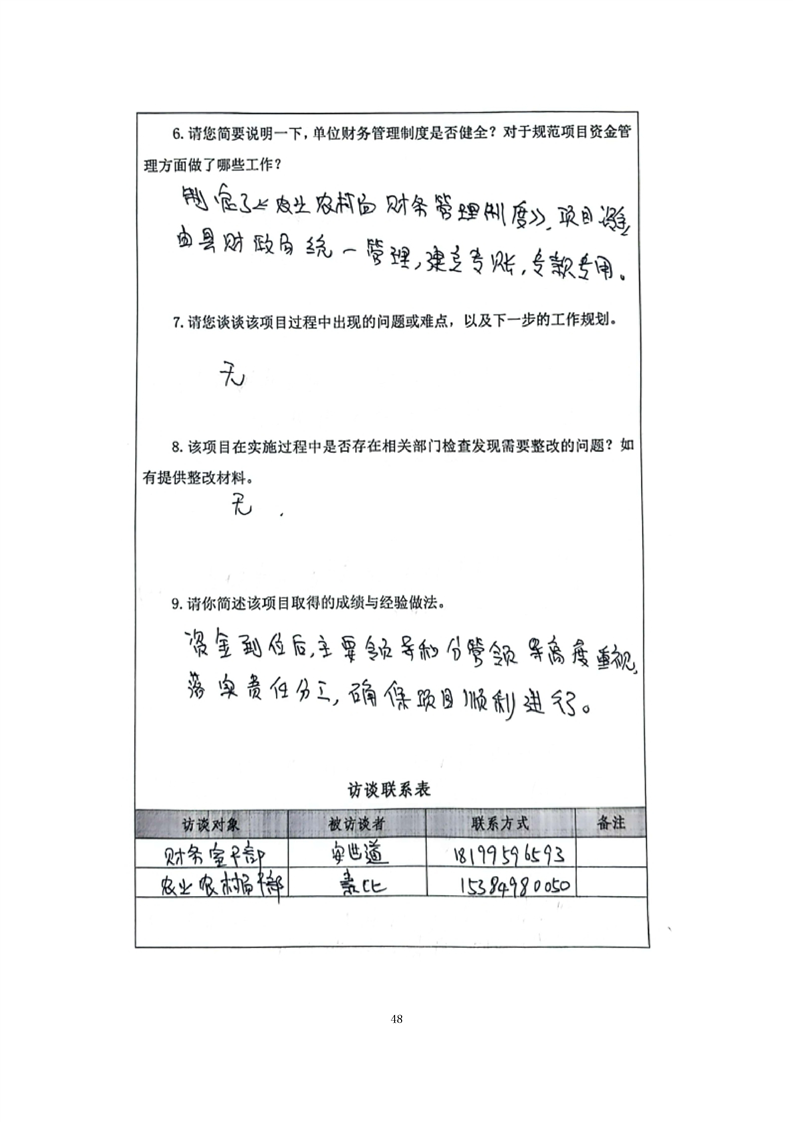 6. 请您简要说明一下，单位财务管理制度是否健全？对于规范项目资金管
理方面做了哪些工作？
制定了《农业农村局财务管理制度》，项目资金
由县财政局统一管理，建立专账，专款专用。
7. 请您谈谈该项目过程中出现的问题或难点，以及下一步的工作规划。
无
8. 该项目在实施过程中是否存在相关部门检查发现需要整改的问题？如
有提供整改材料。
无.
9. 请你简述该项目取得的成绩与经验做法。
资金到位后，主要领导和分管领导高度重视，
落实责任分工，确保项目顺利进行。
访谈联系表
访谈对象 被访谈者 联系方式 备注
财务室干部 安世道 18199596593
农业农村局干部 15384980050
48